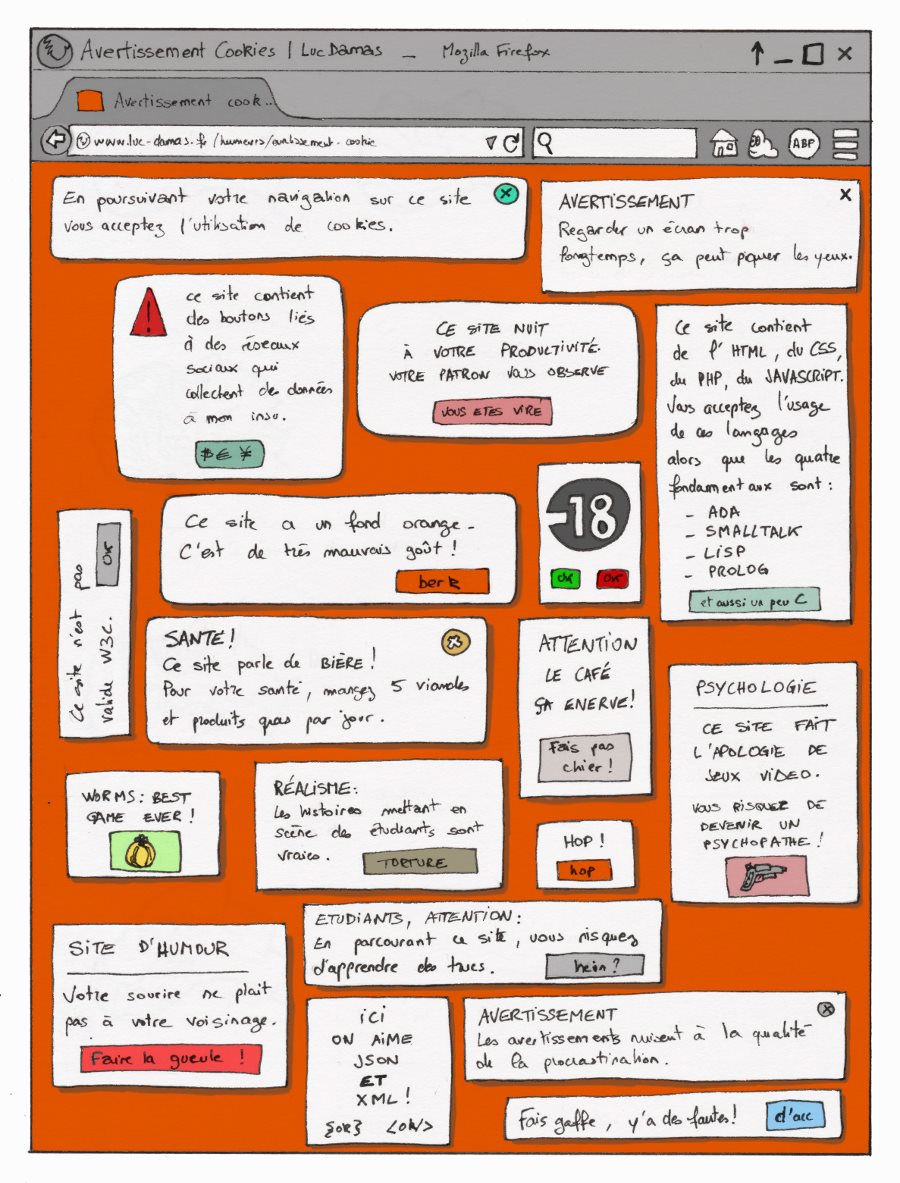 Avertissement Cookies | Luc Damas _ Mozilla Firefox
Avertissement cook..
www.luc-damas.fr/humeurs/avertissement-cookie
ABP
En poursuivant votre navigation sur ce site
vous acceptez l'utilisation de cookies.
AVERTISSEMENT
Regarder un écran trop
longtemps, ça peut piquer les yeux.
ce site contient
des boutons liés
à des réseaux
sociaux qui
collectent des données
à mon insu.
$ € ¥
CE SITE NUIT
À VOTRE PRODUCTIVITÉ.
VOTRE PATRON VOUS OBSERVE
VOUS ETES VIRÉ
Ce site contient
de l'HTML, du CSS,
du PHP, du JAVASCRIPT.
Vous acceptez l'usage
de ces langages
alors que les quatre
fondamentaux sont :
- ADA
- SMALLTALK
- LISP
- PROLOG
et aussi un peu C
-18
OK
OK
Ce site a un fond orange.
C'est de très mauvais goût !
berk
Ce site n'est pas
valide W3C.
OK
SANTÉ!
Ce site parle de BIÈRE!
Pour votre santé, mangez 5 viandes
et produits gras par jour.
ATTENTION
LE CAFÉ
ÇA ENERVE!
Fais pas
chier !
PSYCHOLOGIE
CE SITE FAIT
L'APOLOGIE DE
JEUX VIDEO.
VOUS RISQUEZ DE
DEVENIR UN
PSYCHOPATHE !
WORMS: BEST
GAME EVER !
RÉALISME:
Les histoires mettant en
scène des étudiants sont
vraies.
TORTURE
HOP !
hop
ETUDIANTS, ATTENTION:
En parcourant ce site, vous risquez
d'apprendre des trucs.
hein ?
SITE D'HUMOUR
Votre sourire ne plait
pas à votre voisinage.
Faire la gueule !
ici
ON AIME
JSON
ET
XML !
{OK} <OK/>
AVERTISSEMENT
Les avertissements nuisent à la qualité
de la procrastination.
Fais gaffe, y'a des fautes!
d'acc